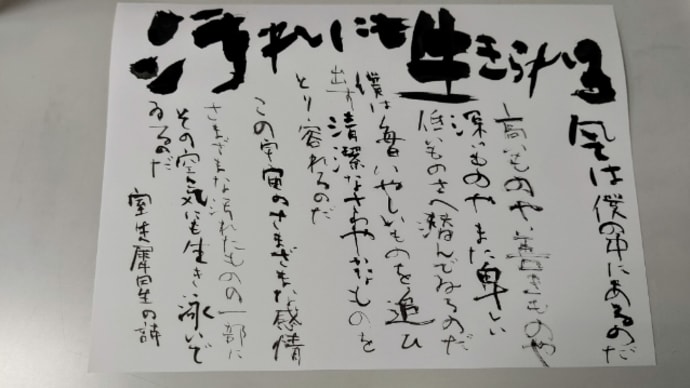 汚れにも生きられる
凡ては僕の中にあるのだ
高いものや善きものや
深いものやまた卑しい
低いものさへ潜んでゐるのだ
僕は毎いやしいものを追ひ
出す清潔なさわやかなものを
とり容れるのだ
この宇宙のさまざまな感情
さまざまな汚れたものの一部に
その空気にも生き泳いで
ゐるのだ
室生犀星の詩